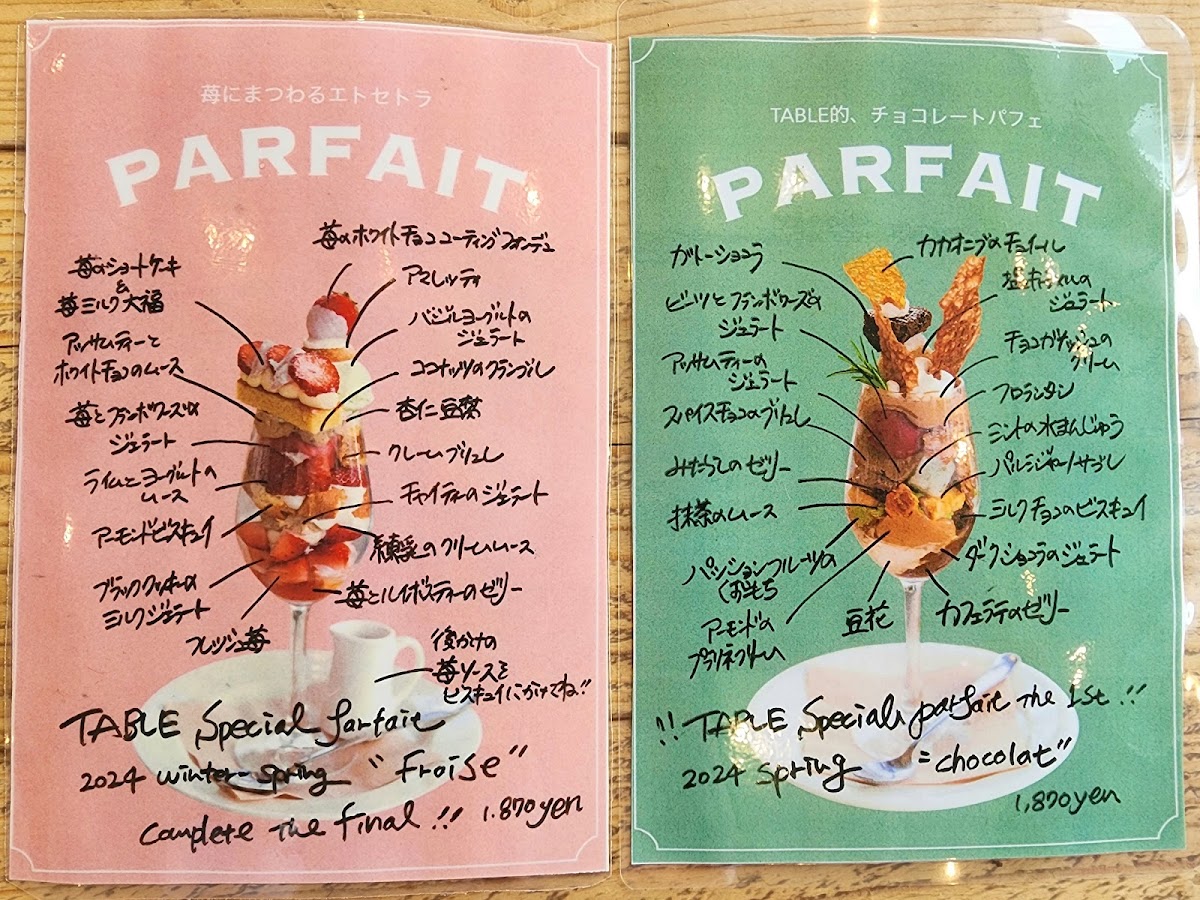 苺にまつわるエトセトラ
PARFAIT
苺のホワイトチョココーティングフォンデュ
苺のショートケーキ
&
苺ミルク大福
アマレッティ
アッサムティーと
ホワイトチョコのムース
バジルヨーグルトの
ジェラート
ココナッツのクランブル
苺とフランボワーズの
ジェラート
杏仁豆腐
クレームブリュレ
ライムとヨーグルトの
ムース
チャイティーのジェラート
アーモンドビスキュイ
練乳のクリームムース
ブラッククッキーの
ミルクジェラート
苺とルイボスティーのゼリー
フレッシュ苺
後がけの
苺ソースを
ビスキュイにかけてね!!
TABLE Special Parfait
2024 winter-spring "Froise"
Complete the final !! 1.870yen
TABLE的、チョコレートパフェ
PARFAIT
ガトーショコラ
カカオニブのチュイール
ビーツとフランボワーズの
ジェラート
塩キャラメルの
ジェラート
アッサムティーの
ジェラート
チョコガナッシュの
クリーム
スパイスチョコのブリュレ
フロランタン
ミントの水まんじゅう
みたらしのゼリー
パルミジャーノサブレ
抹茶のムース
ミルクチョコのビスキュイ
パッションフルーツの
おもち
ダークショコラのジェラート
アーモンドの
プラリネクリーム
豆花
カフェラテのゼリー
!! TABLE Special parfait The 1st !!
2024 spring "chocolat"
1,870yen